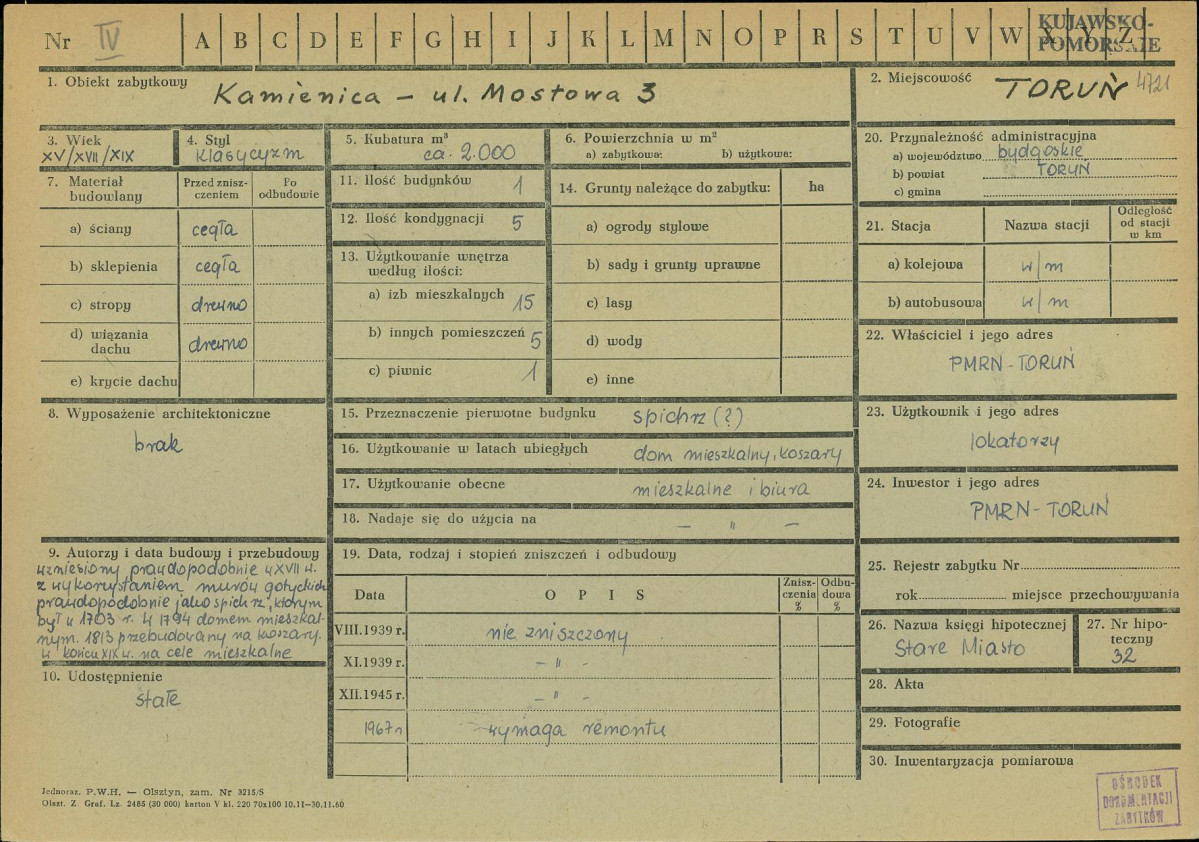 Nr IV A B C D E F G H I J K L M N O P R S T U V W X Y Z
KUJAWSKO-
POMORSKIE
1. Obiekt zabytkowy
Kamienica – ul. Mostowa 3
2. Miejscowość
TORUŃ 4721
3. Wiek
XV/XVII/XIX
4. Styl
klasycyzm
5. Kubatura m³
ca. 2.000
6. Powierzchnia w m²
a) zabytkowa: b) użytkowa:
7. Materiał budowlany
Przed zniszczeniem
Po odbudowie
a) ściany cegła
b) sklepienia cegła
c) stropy drewno
d) wiązania dachu drewno
e) krycie dachu
8. Wyposażenie architektoniczne
brak
9. Autorzy i data budowy i przebudowy
wzniesiony prawdopodobnie w XVII w.
z wykorzystaniem murów gotyckich
prawdopodobnie jako spichrz, którym
był w 1703 r. W 1794 domem mieszkal-
nym. 1813 przebudowany na koszary.
w końcu XIX w. na cele mieszkalne
10. Udostępnienie
stałe
11. Ilość budynków 1
12. Ilość kondygnacji 5
13. Użytkowanie wnętrza
według ilości:
a) izb mieszkalnych 15
b) innych pomieszczeń 5
c) piwnic 1
14. Grunty należące do zabytku: ha
a) ogrody stylowe
b) sady i grunty uprawne
c) lasy
d) wody
e) inne
15. Przeznaczenie pierwotne budynku spichrz (?)
16. Użytkowanie w latach ubiegłych dom mieszkalny, koszary
17. Użytkowanie obecne mieszkalne i biura
18. Nadaje się do użycia na – " –
19. Data, rodzaj i stopień zniszczeń i odbudowy
Data
O P I S
Znisz-
czenia
%
Odbu-
dowa
%
VIII.1939 r. nie zniszczony
XI.1939 r. – " –
XII.1945 r. – " –
1967 r wymaga remontu
20. Przynależność administracyjna
a) województwo bydgoskie
b) powiat TORUŃ
c) gmina
21. Stacja
Nazwa stacji
Odległość
od stacji
w km
a) kolejowa w/m
b) autobusowa w/m
22. Właściciel i jego adres
PMRN - TORUŃ
23. Użytkownik i jego adres
lokatorzy
24. Inwestor i jego adres
PMRN - TORUŃ
25. Rejestr zabytku Nr
rok miejsce przechowywania
26. Nazwa księgi hipotecznej
Stare Miasto
27. Nr hipo-
teczny
32
28. Akta
29. Fotografie
30. Inwentaryzacja pomiarowa
Jednoraz. P.W.H. — Olsztyn, zam. Nr 3215/S
Olszt. Z. Graf. Lz. 2485 (30 000) karton V kl. 220 70x100 10.11—30.11.60
OŚRODEK
DOKUMENTACJI
ZABYTKÓW